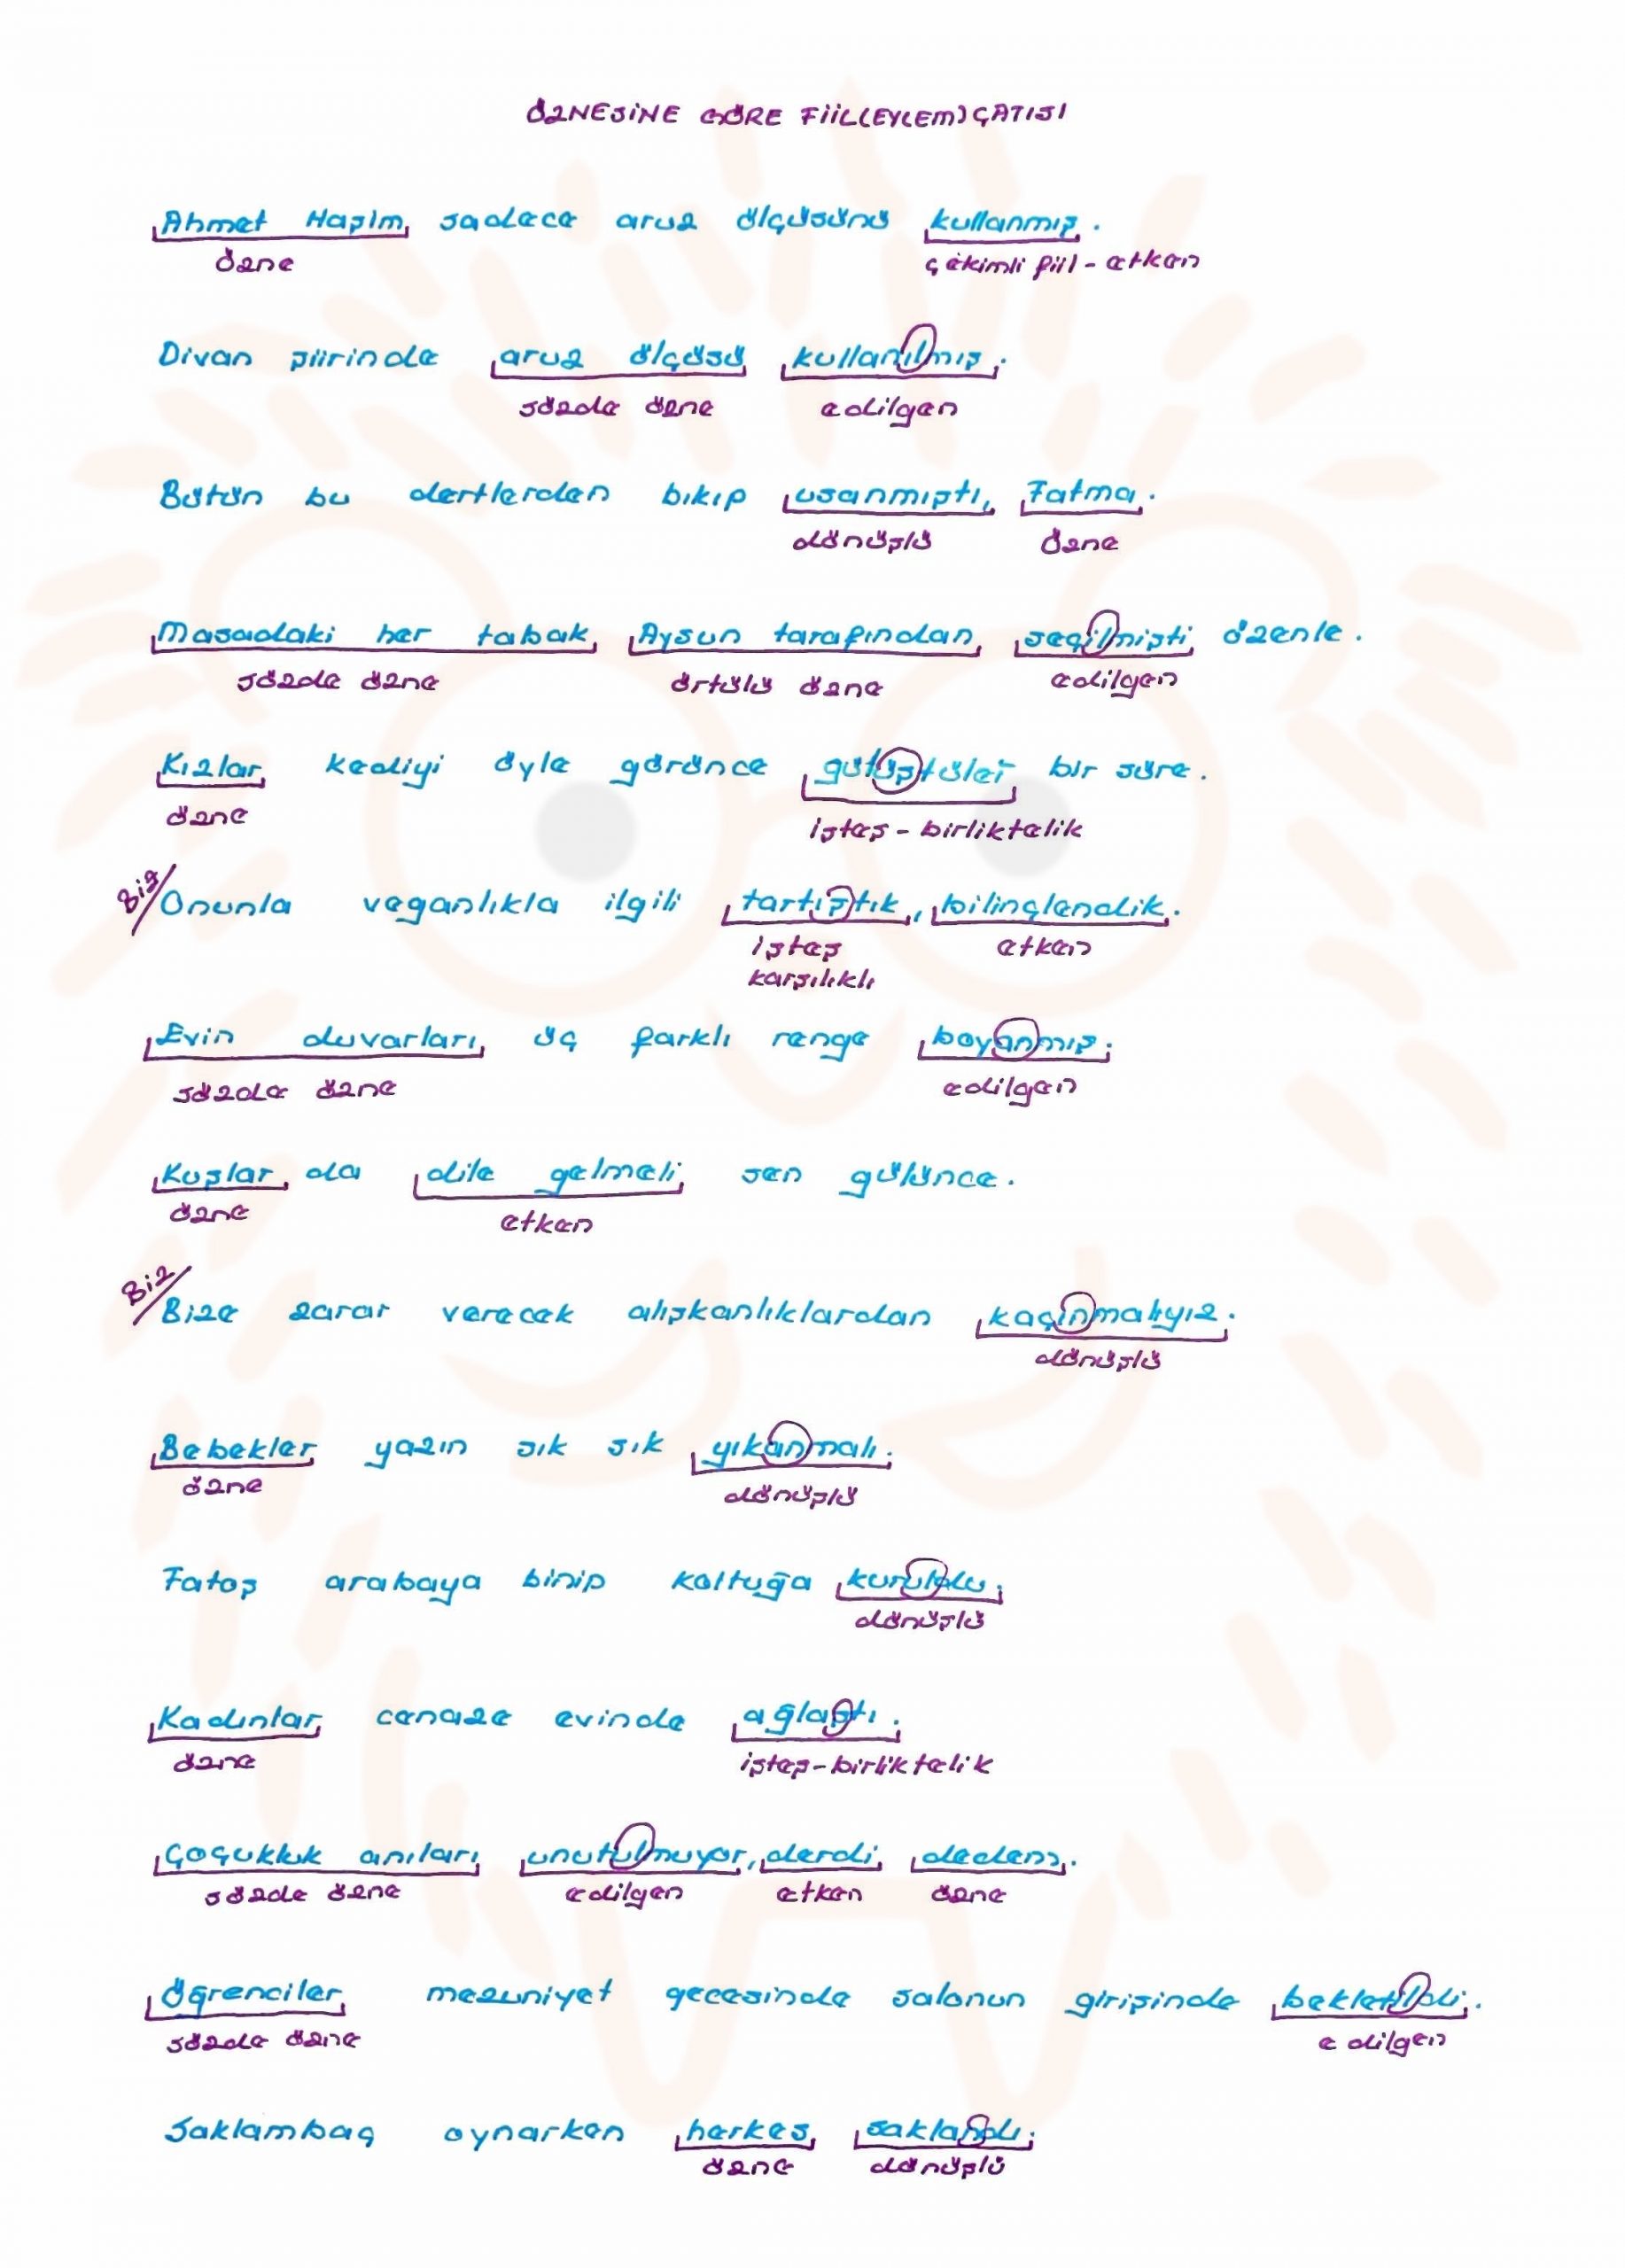 ÖZNESİNE GÖRE FİİL(EYLEM) ÇATISI
Ahmet Haşim sadece aruz ölçüsünü kullanmış.
özne çekimli fiil - etken
Divan şiirinde aruz ölçüsü kullanılmış.
sözde özne edilgen
Bütün bu dertlerden bıkıp usanmıştı, Fatma.
dönüşlü özne
Masadaki her tabak Aysun tarafından seçilmişti özenle.
sözde özne örtülü özne edilgen
Kızlar kediyi öyle görünce gülüştüler bir süre.
özne işteş - birliktelik
Biz/ Onunla veganlıkla ilgili tartıştık, bilinçlendik.
işteş etken
karşılıklı
Evin duvarları üç farklı renge boyanmış.
sözde özne edilgen
Kuşlar da dile gelmeli sen gülünce.
özne etken
Biz/ Bize zarar verecek alışkanlıklardan kaçınmalıyız.
dönüşlü
Bebekler yazın sık sık yıkanmalı.
özne dönüşlü
Fatoş arabaya binip koltuğa kuruldu.
dönüşlü
Kadınlar cenaze evinde ağlaştı.
özne işteş-birliktelik
Çoçukluk anıları unutulmuyor, derdi dedem.
sözde özne edilgen etken özne
Öğrenciler mezuniyet gecesinde salonun girişinde bekletildi.
sözde özne edilgen
Saklambaç oynarken herkes saklandı.
özne dönüşlü